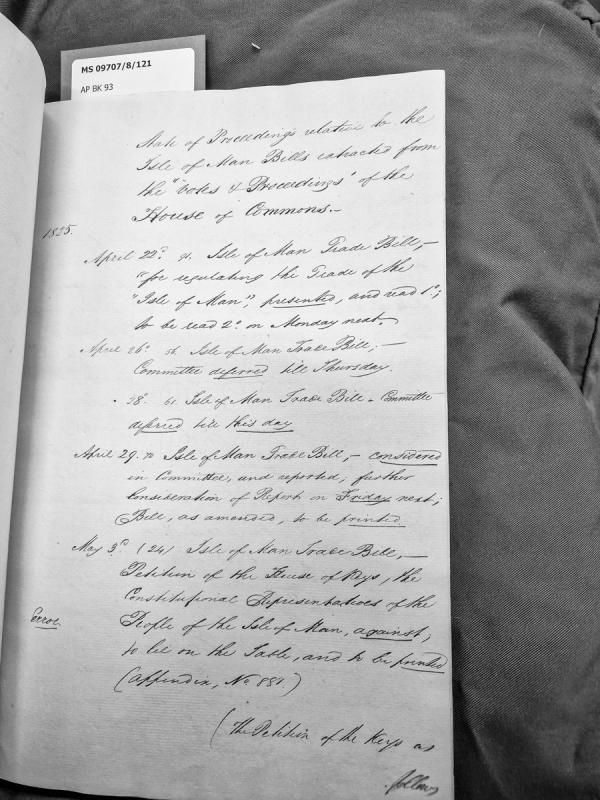 MS 09707/8/121
AP BK 93
State of Proceedings relative to the
Isle of Man Bills extracted from
the "Votes & Proceedings" of the
House of Commons.—
1825.
April 22d. Isle of Man Trade Bill,—
"for regulating the Trade of the
"Isle of Man", presented, and read 1o;
to be read 2o on Monday next.
April 26o Isle of Man Trade Bill;—
Committee deferred till Thursday.
28. 61. Isle of Man Trade Bill - Committee
deferred till this day
April 29. 70 Isle of Man Trade Bill,— considered
in Committee, and reported; further
Consideration of Report on Friday next;
Bill, as amended, to be printed
May 3d (24) Isle of Man Trade Bill,—
Petition of the House of Keys, the
Constitutional Representatives of the
Error People of the Isle of Man, against;
to lie on the Table, and to be printed
(Appendix, No 881.)
(The Petition of the Keys as
follows